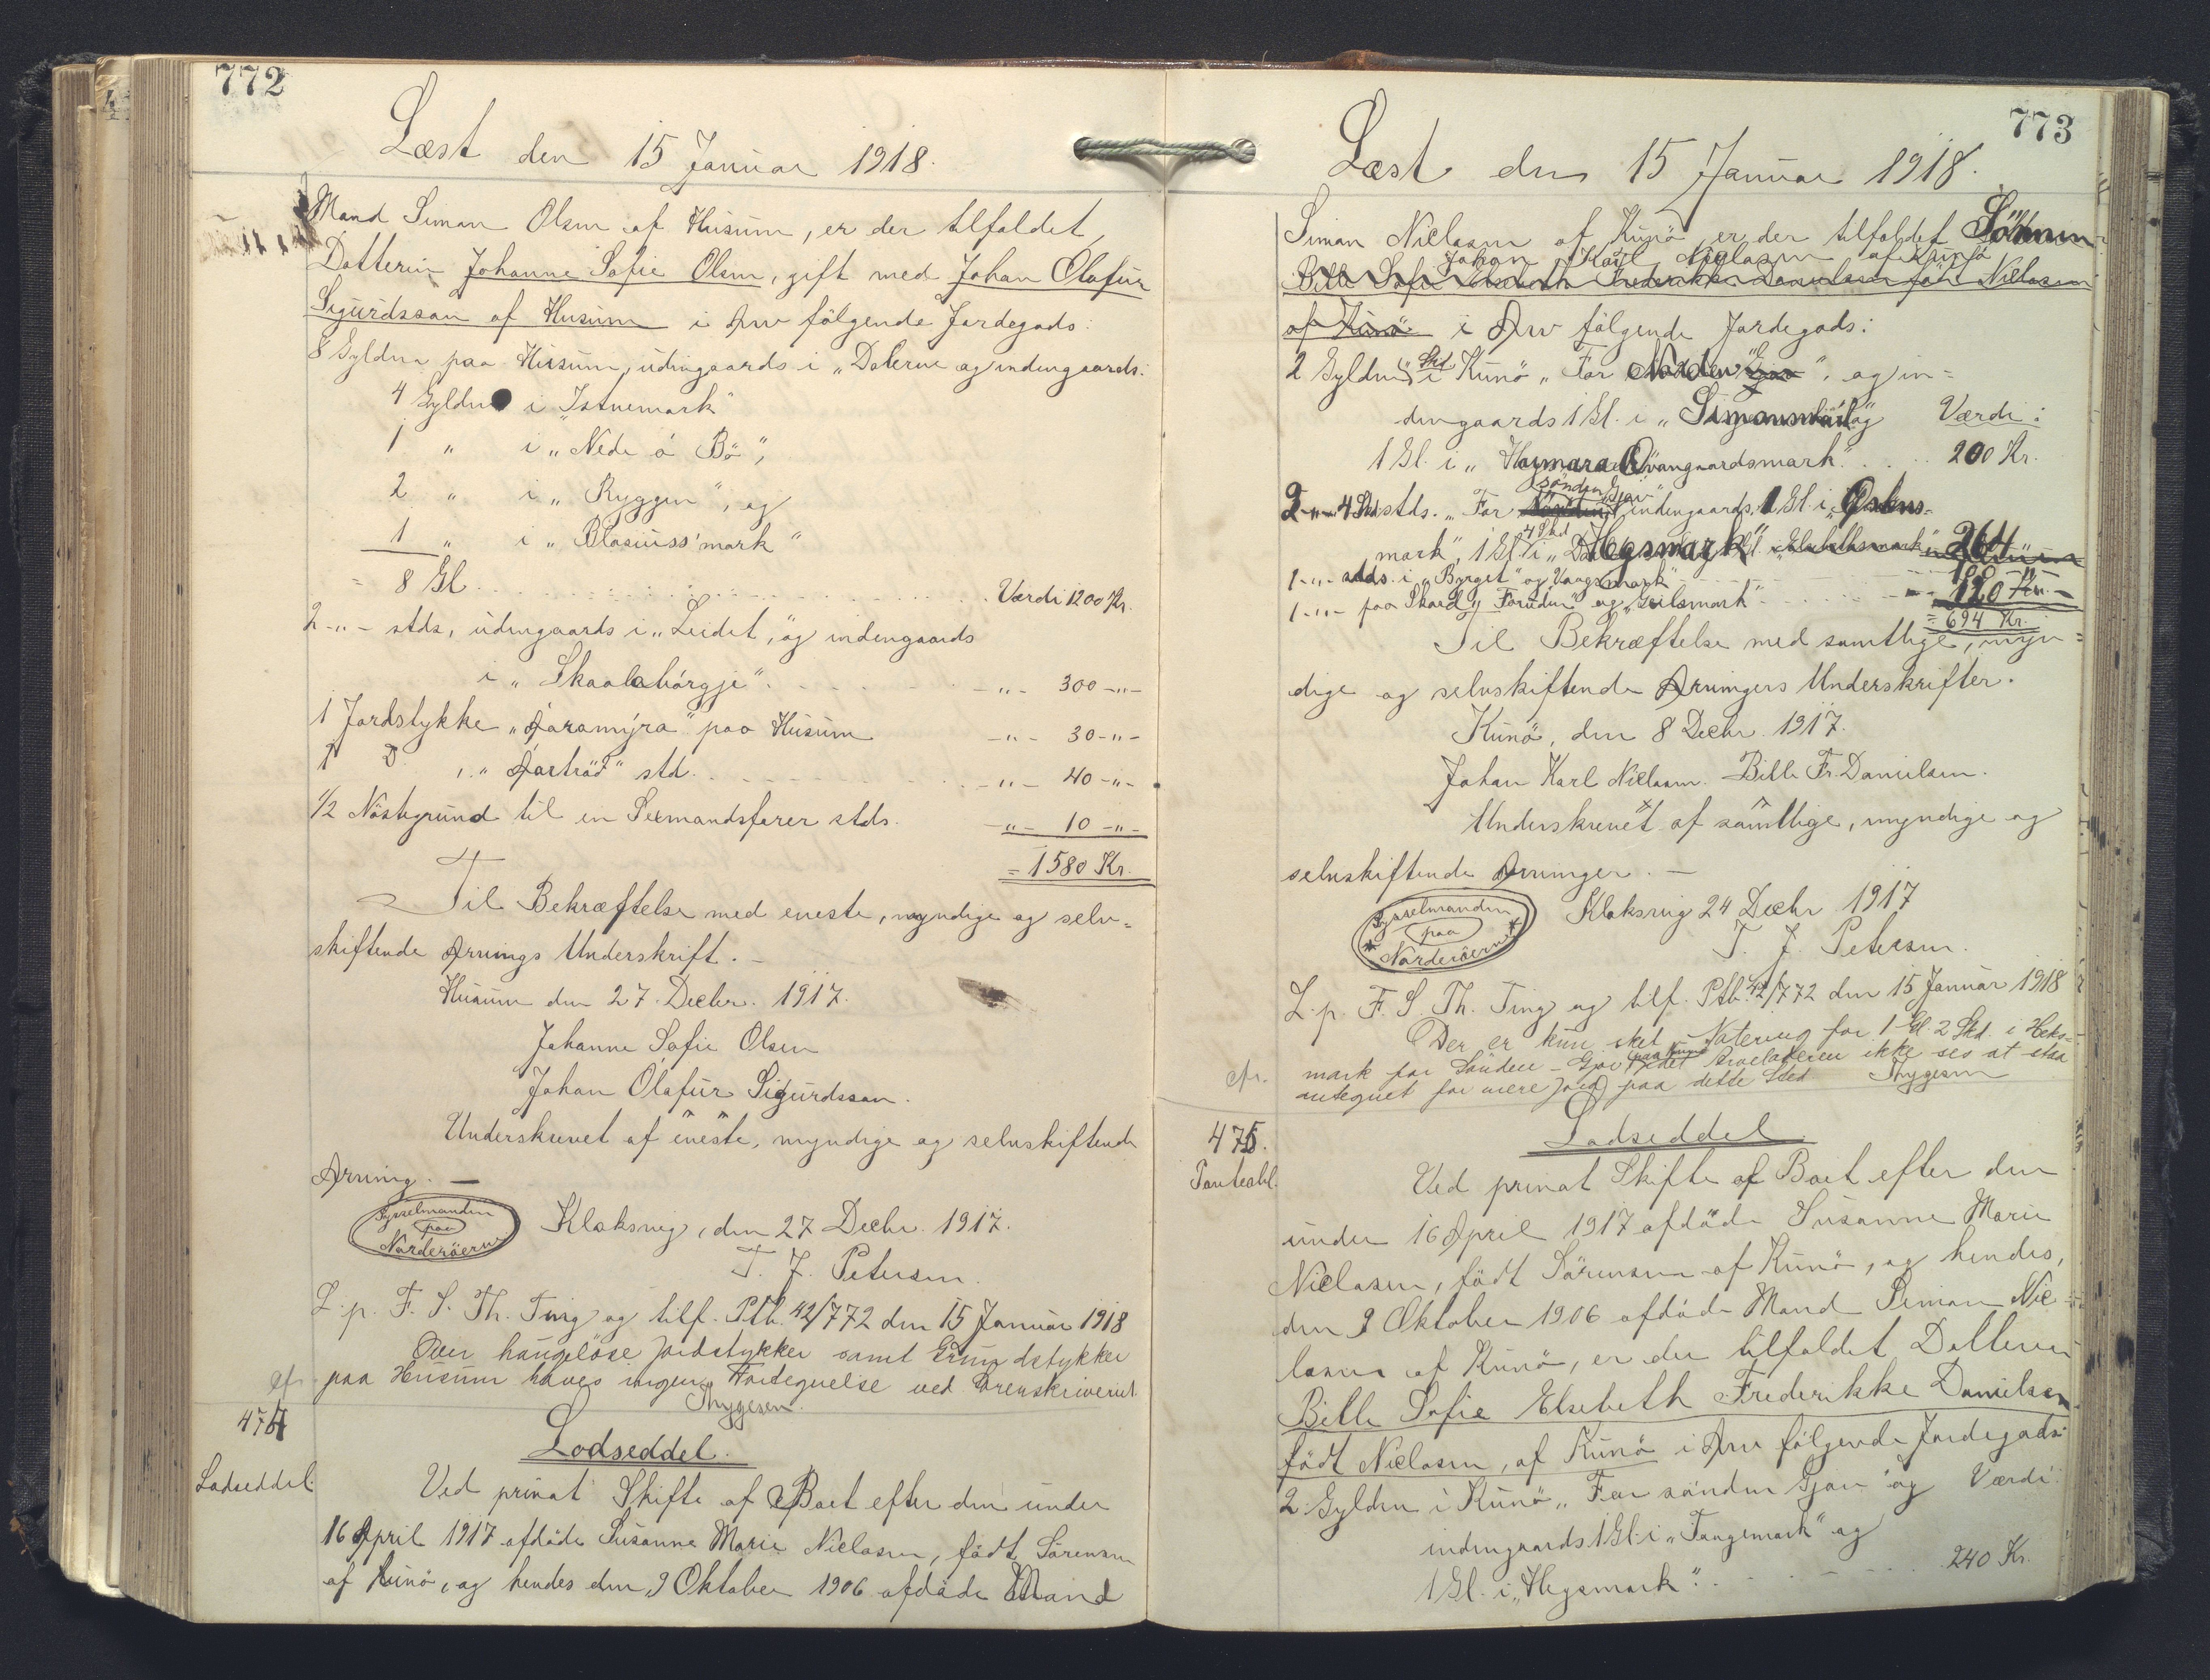 772
Læst den 15 Januar 1918.
Mand Siman Olsen af Husum, er der tilfaldet
Datteren Johanne Sofie Olsen, gift med Johan Olafur
Sigurdsson af Husum i Arv følgende Jordegods:
8 Gylden paa Husum, udengaards i „Dalerne og indengaards:
4 Gylden i „Istnemark"
1 " i „Nede á Bø",
2 " i „Ryggen", og
1 " i „Blasiuss'mark"
= 8 Gl. Værdi 1200 Kr.
2 -"- stds, udengaards i „Leidet", og indengaards
i „Skaalabórgje". -"- 300 -"-
1 Jordstykke „Aaramýra" paa Husum -"- 30 -"-
1 D „Aartröd" std. -"- 40 -"-
1/2 Nöstegrund til en Sexmandsfarer stds. -"- 10 -"-
= 1580 Kr.
Til Bekræftelse med eneste, myndige og selv-
skiftende Arvings Underskrift. -
Husum den 27. Decbr. 1917.
Johanne Sofie Olsen
Johan Ólafur Sigurdsson.
Underskrevet af eneste, myndige og selvskiftende
Arving. —
Sysselmanden
paa
Norderöerne
Klaksvig, den 27 Decbr. 1917.
T. J. Petersen.
L. p. F. S. Th. Ting og tilf. Ptb. 42/772 den 15 Januar 1918
Over haugelöse Jordstykker samt Grundstykker
cfr. paa Husum haves ingen Fortegnelse ved Sorenskriveriet
Thygesen.
474
Lodseddel.
Lodseddel.
Ved privat Skifte af Boet efter den under
16 April 1917 afdöde Susanne Marie Niclasen, födt Sörensen
af Kunö, og hendes den 9 Oktober 1906 afdöde Mand
773
Læst den 15 Januar 1918.
Siman Niclasen af Kunö, er der tilfaldet Sönnen
Johan Karl Niclasen af Kunö
Bille Sofie Elsebeth Frederikke Danielsen födt Niclasen
af Kunö i Arv følgende Jordegods:
2 Gylden Skd i Kunö „Før Norden Gjov", og in-
dengaards 1 Gl. i „Simansmark" og Værdi:
1 Gl. i „Hamara Qvangaardsmark". 200 Kr.
sönden Gjov"
2 -"- 4 Skd stds. „Før indengaards, 1 Gl. i „Oskus-
4 Skd
mark", 1 Gl. i „Hegsmark" 264
1 -"- stds. i „Byrget" og Vaagsmark" 100 -"-
1 -"- paa Skard „Foruden" og „Geilsmark" 120 Kr. -
= 694 Kr.
Til Bekræftelse med samtlige, myn-
dige og selvskiftende Arvingers Underskrifter.
Kunö, den 8 Decbr. 1917.
Johan Karl Niclasen. Bille Fr. Danielsen.
Underskrevet af samtlige, myndige og
selvskiftende Arvinger. —
Sysselmanden
paa
Norderöerne
Klaksvig 24 Decbr 1917
T. J. Petersen.
L. p. F. S. Th. Ting og tilf. Ptb. 42/772 den 15 Januar 1918
Der er kun sket Notering for 1 Gl. 2 Skd. i Heks-
cfr. mark for Sönden-Gjov paa Kunö, idet Arveladeren ikke ses at staa
antegnet for mere Jord paa dette Sted Thygesen
475.
Panteobl.
Lodseddel.
Ved privat Skifte af Boet efter den
under 16 April 1917 afdöde Susanne Marie
Niclasen, födt Sörensen af Kunö, og hendes,
den 9 Oktober 1906 afdöde Mand Siman Nic-
lasen af Kunö, er der tilfaldet Datteren
Bille Sofie Elsebeth Frederikke Danielsen
födt Niclasen, af Kunö i Arv følgende Jordegods:
2 Gylden i Kunö „Før sönden Gjov" og Værdi:
indengaards 1 Gl. i „Tangemark" og
1 Gl. i „Hegsmark". 240 Kr.